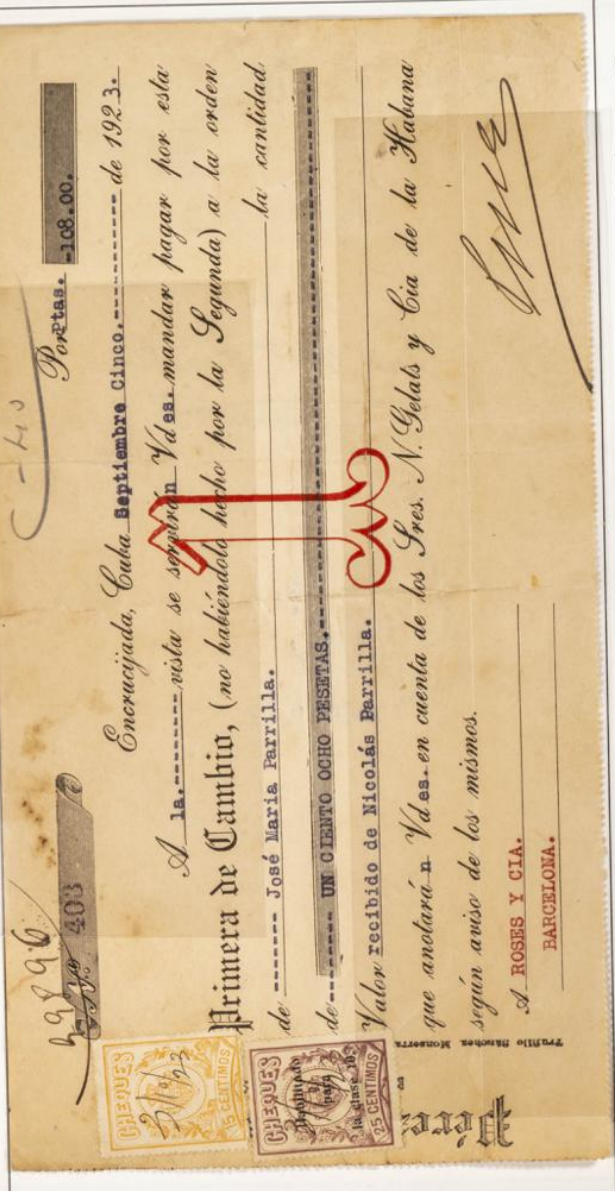 39896
Nº. 403
PorPtas. -108.00.
Encrucijada, Cuba Septiembre Cinco.---------- de 1923.
A la.--------vista se servirán Vdes. mandar pagar por esta
Primera de Cambio, (no habiéndolo hecho por la Segunda) a la orden
de ------- José María Parrilla. la cantidad
de-------- UN CIENTO OCHO PESETAS.
Valor recibido de Nicolás Parrilla.
que anotarán Vdes. en cuenta de los Sres. N. Gelats y Cia de la Habana
según aviso de los mismos.
A ROSES Y CIA.
BARCELONA.
CHEQUES
3/10/23
15 CENTIMOS
CHEQUES
Habilitado
para
la clase 10ª
25 CENTIMOS
Pére
Trujillo Sánchez, Monserra